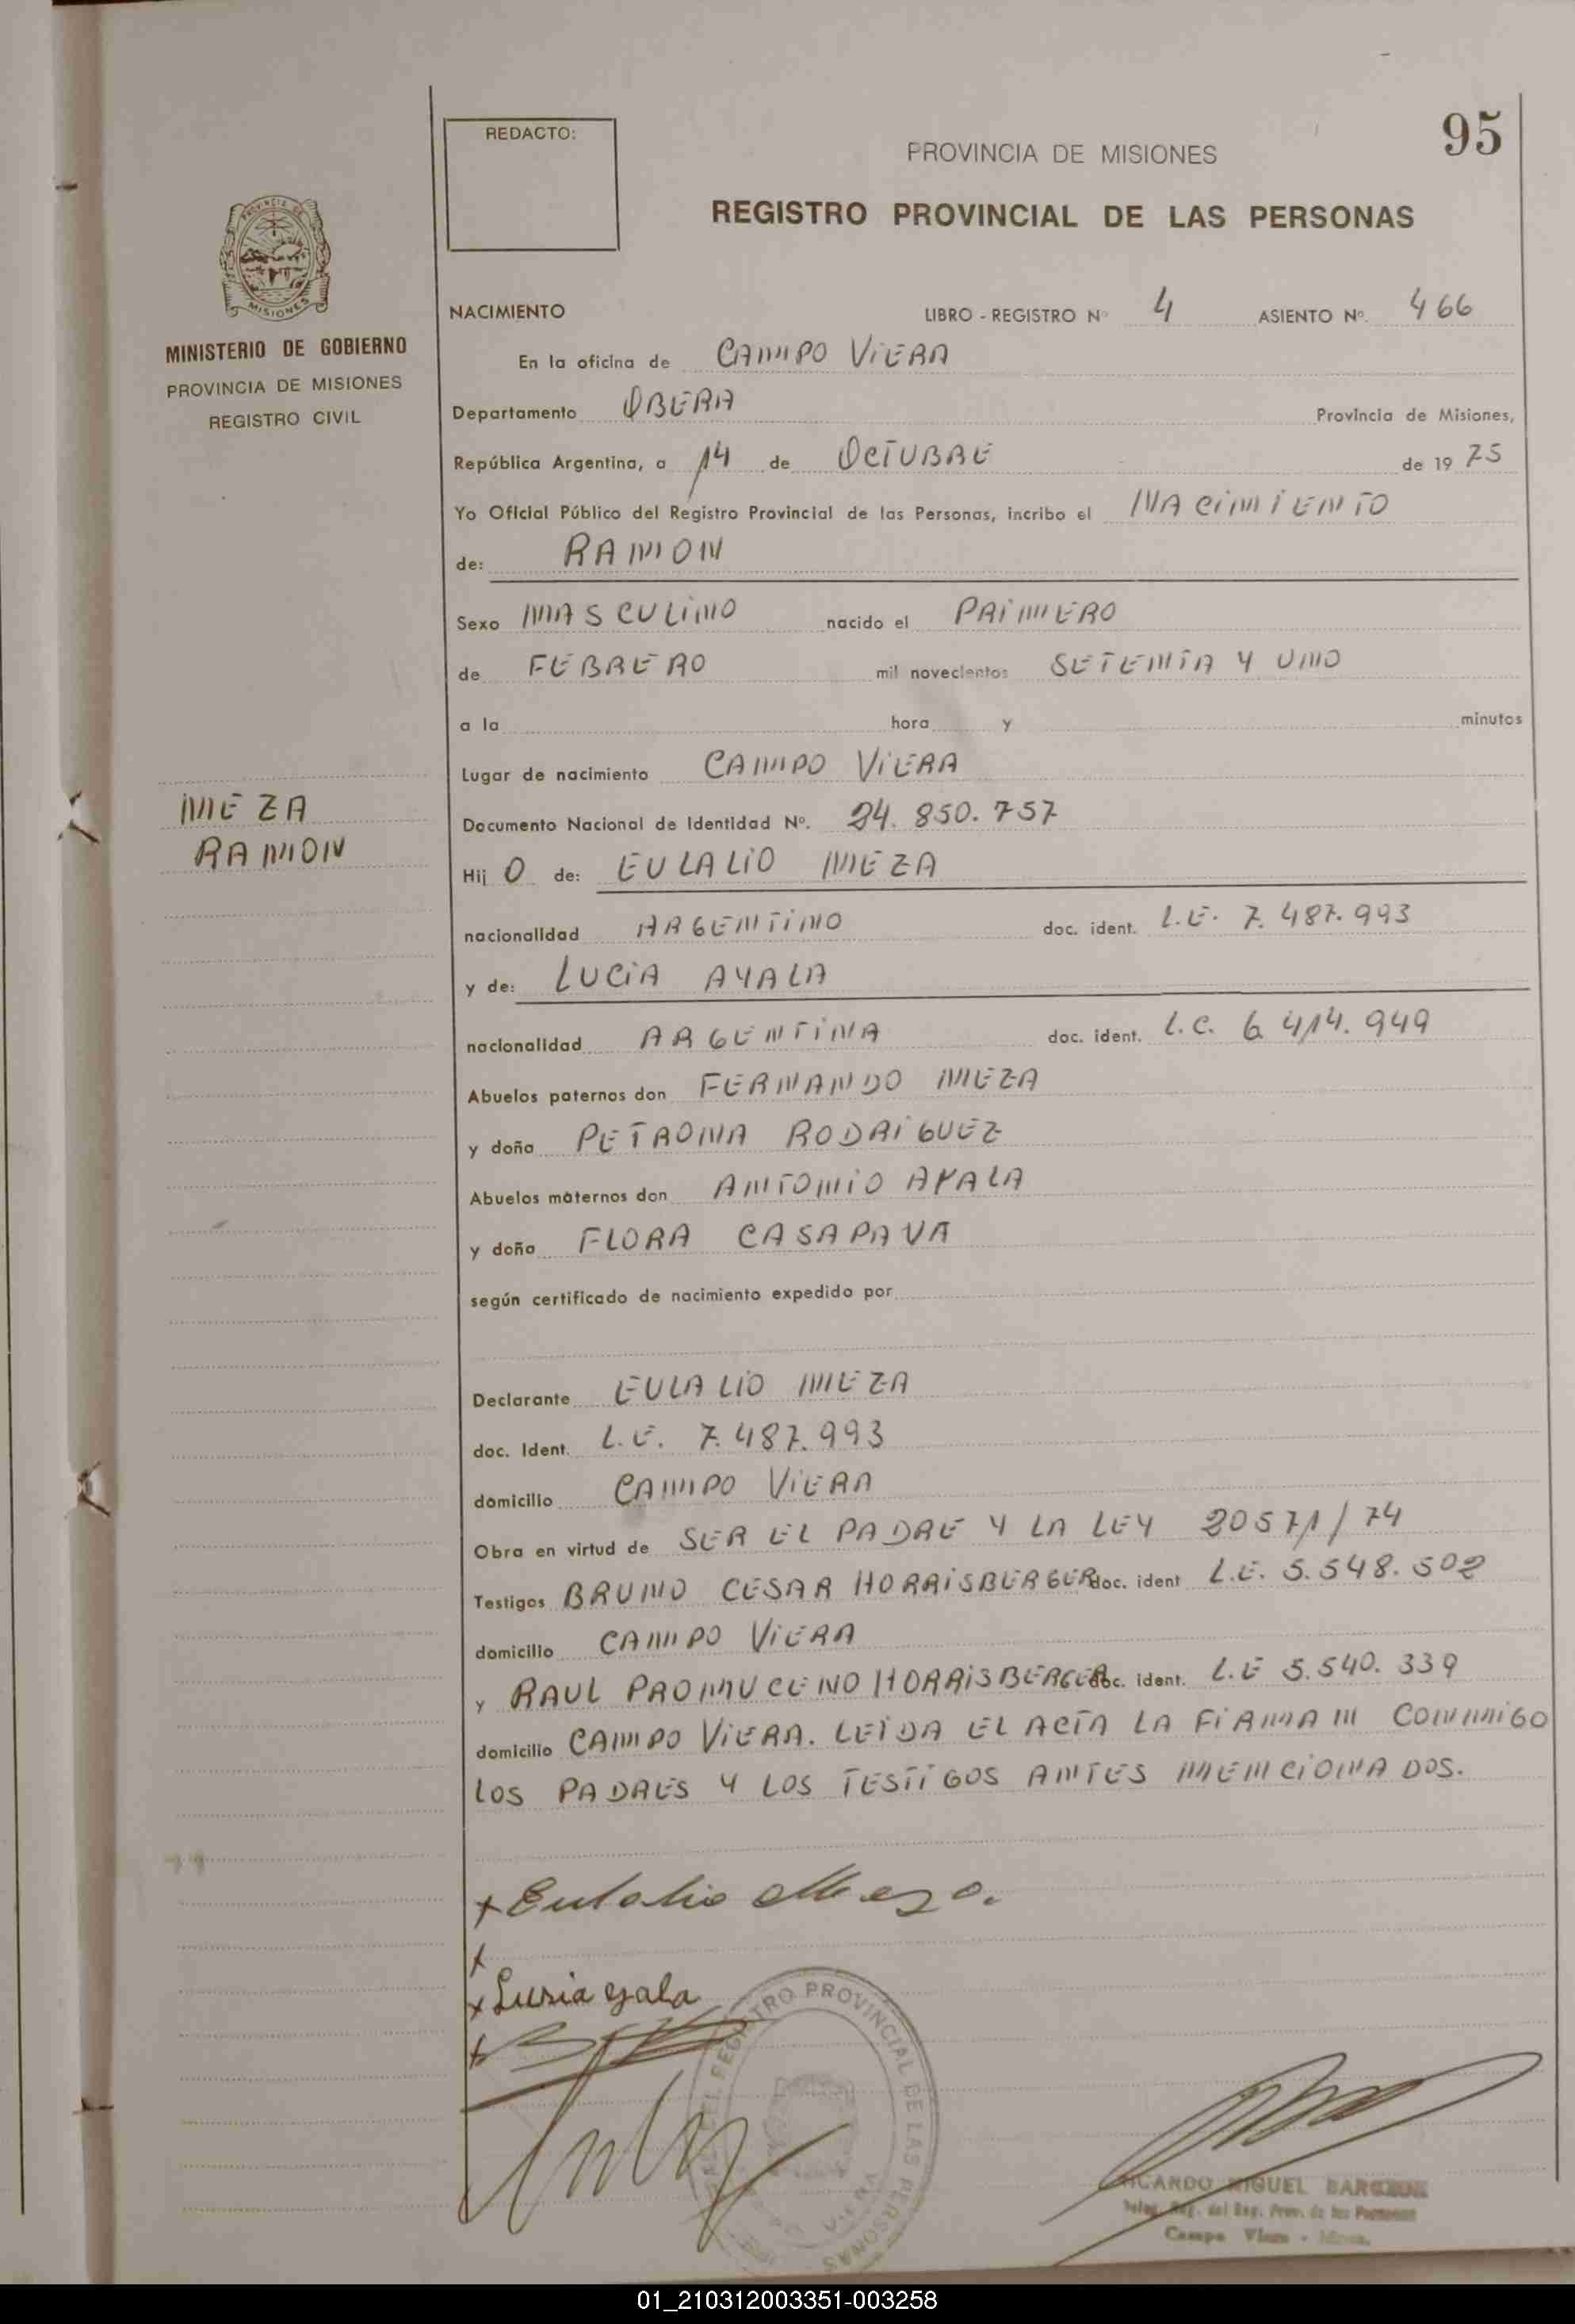 REDACTO:
95
PROVINCIA DE MISIONES
REGISTRO PROVINCIAL DE LAS PERSONAS
PROVINCIA DE
MISIONES
MINISTERIO DE GOBIERNO
PROVINCIA DE MISIONES
REGISTRO CIVIL
NACIMIENTO LIBRO - REGISTRO Nº 4 ASIENTO Nº. 466
En la oficina de CAMPO VIERA
Departamento OBERA Provincia de Misiones,
República Argentina, a 14 de OCTUBRE de 19 75
Yo Oficial Público del Registro Provincial de las Personas, incribo el NACIMIENTO
de: RAMON
Sexo MASCULINO nacido el PRIMERO
de FEBRERO mil novecientos SETENTA Y UNO
a la hora y minutos
Lugar de nacimiento CAMPO VIERA
MEZA
RAMON
Documento Nacional de Identidad Nº. 24.850.757
Hij O de: EULALIO MEZA
nacionalidad ARGENTINO doc. ident. L.E. 7.487.993
y de: LUCIA AYALA
nacionalidad ARGENTINA doc. ident. L.C. 6.414.949
Abuelos paternos don FERNANDO MEZA
y doña PETRONA RODRIGUEZ
Abuelos maternos don ANTONIO AYALA
y doña FLORA CASAPAVA
según certificado de nacimiento expedido por
Declarante EULALIO MEZA
doc. Ident. L.E. 7.487.993
domicilio CAMPO VIERA
Obra en virtud de SER EL PADRE Y LA LEY 20571/74
Testigos BRUNO CESAR HORRISBERGER doc. ident L.E. 5.548.502
domicilio CAMPO VIERA
y RAUL PROMUCENO HORRISBERGER doc. ident. L.E 5.540.339
domicilio CAMPO VIERA. LEIDA EL ACTA LA FIRMAN CONMIGO
LOS PADRES Y LOS TESTIGOS ANTES MENCIONADOS.
x Eulalio Meza.
x
x Lusia yala
x
REGISTRO PROVINCIAL DE LAS PERSONAS
RICARDO MIGUEL
del Reg. Prov. de las Personas
Campo Viera - Mnes.
01_210312003351-003258